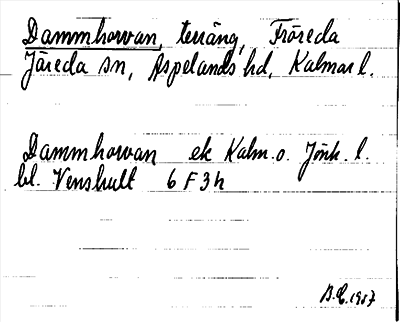 Dammhorvan, terräng, Fröreda
Järeda sn, Aspelands hd, Kalmar l.
Dammhorvan ek Kalm. o. Jönk. l.
bl. Venshult 6 F 3 h
1987